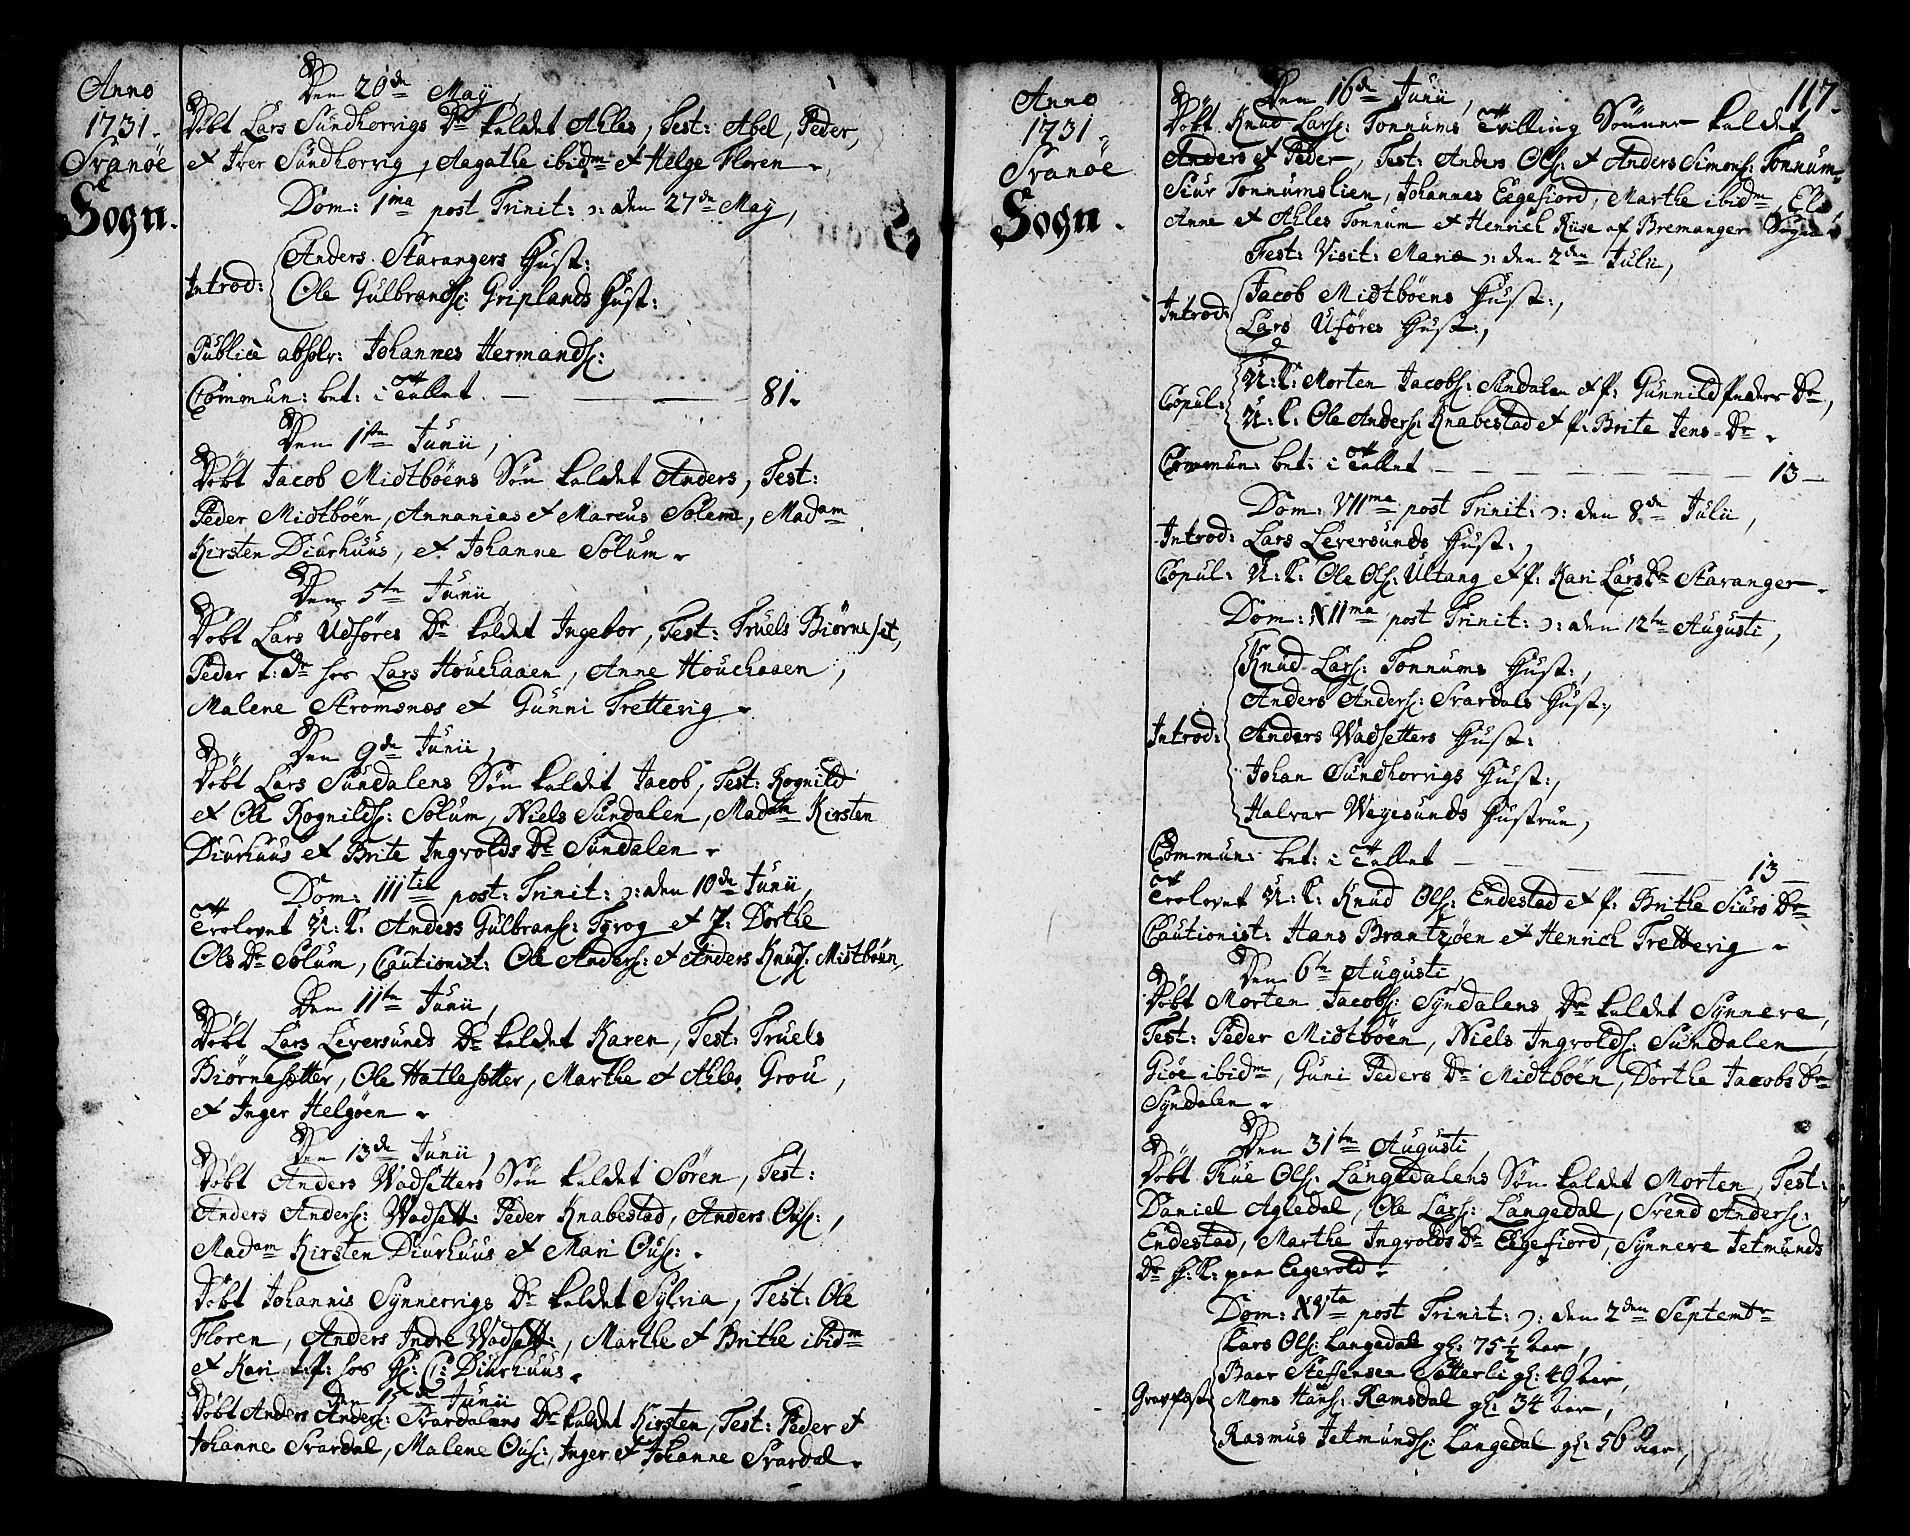 Anno
1731.
Svanöe
Sogn.
Den 20de May,
Döbt Lars Sündhorvigs Dr kaldet Ahles, Test: Abel, Peder,
et Iver Sündhorvig, Aagathe ibidm et Helge Floren.
Dom: 1ma post Trinit: ɔ: den 27de May,
Anders Stavangers Hust:
Introd:
Ole Gülbrandß: Griplands Hust:
Publicè absolv: Johannes Hermandß:
Commun: bet: i Tallet — — — 81.
Den 1ste Junii,
Döbt Jacob Midtböens Sön kaldet Anders, Test:
Peder Midtböen, Annanias et Marcus Solem, Madam
Kirsten Diurhuus, et Johanne Solum.
Den 5te Junii
Döbt Lars Udföres Dr kaldet Ingebor, Test: Truels Biörneset,
Peder t: Dr hos Lars Houehaaen, Anne Houehaaen,
Malene Stromsnes et Gunni Trettevig.
Den 9de Junii,
Döbt Lars Sündalens Sön kaldet Jacob, Test: Rognild
et Ole Rognildß: Solum, Niels Sundalen, Madam Kirsten
Diurhuus et Brite Ingvolds Dr Sundalen.
Dom: IIItia post: Trinit: ɔ: den 10de Junii,
Trolovet U: K: Anders Gülbranß: Tyvog et P: Dorthe
Ols Dr Solum, Cautionist: Ole Anderß: et Anders Knudß: Midtböen,
Den 11te Junii,
Döbt Lars Leversunds Dr kaldet Karen, Test: Truels
Biörnesetter, Ole Hatlesetter, Marthe et Ahles Grou,
et Inger Helgöen.
Den 13de Junii,
Döbt Anders Vadsetters Sön kaldet Sören, Test:
Anders Anderß: Wadsett: Peder Knabestad, Anders Olß:,
Madam Kirsten Diurhuus et Mari Olß:.
Döbt Johannis Synnervigs Dr kaldet Sylvia, Test: Ole
Floren, Anders Indre Wadsett:, Marthe et Brithe ibidm
et Kari t: p: hos Hr: C: Diurhuus.
den 15de Junii
Döbt Anders Anderß: Svardalens Dr kaldet Kirsten, Test: Peder et
Johanne Svardal, Malene Olß:, Inger et Johanne Svardal.
Anno
1731.
Svanöe
Sogn.
117.
Den 16de Junii,
Döbt Knud Larß: Tonnums Tvilling Sönner kaldet
Anders et Peder, Test: Anders Olß: et Anders Simonß: Tonnum.
Siur Tonnumslien, Johannes Eegefiord, Marthe ibidm, Els
Anne et Ahles Tonnum et Henrich Riise af Bremanger Sogn.
Fest: Visit: Mariæ ɔ: den 2den Julii,
Jacob Midtböens Hust:,
Introd:
Lars Uföres Hust:,
U: K: Morten Jacobß: Sundalen et p: Gunnild Peders Dr,
Copul:
U: K: Ole Anderß: Knabestad et p: Brite Jens Dr.
Commun: bet: i Tallet — — — 13 —
Dom: VIIma post Trinit: ɔ: den 8de Julii,
Introd: Lars Leversunds Hust:,
Copul: U: K: Ole Olß: Ultang et p: Kari Lars Dr Stavanger.
Dom: XIIma post Trinit: ɔ: den 12te Augusti,
Knud Larß: Tonnums Hust:,
Anders Anderß: Svardals Hust:,
Introd: Anders Wadsetters Hust:
Johan Sundhorvigs Hust:,
Halvar Wejesunds Hustrue,
Commun: bet: i Tallet — — — 13 —
Trolovet U: K: Knud Olß: Endestad et p: Brithe Siurs Dr
Cautionist: Hans Brantzöen et Henrich Trettevig.
Den 6te Augusti,
Döbt Morten Jacobß: Syndalens Dr kaldet Synneve,
Test: Peder Midtböen, Niels Ingvoldß: Sundalen,
Giöe ibidm, Guni Peders Dr Midtböen, Dorthe Jacobs Dr
Syndalen.
Den 31te Augusti,
Döbt True Olß: Langedalens Sön kaldet Morten, Test:
Daniel Agledal, Ole Larß: Langedal, Svend Anderß:
Endestad, Marthe Ingvolds Dr Eegefiord, Synneve Jetmunds
Dr H: K: paa Eegevold.
Dom: XVta post Trinit: ɔ: den 2den Septembr
Lars Olß: Langedal gl: 75 1/2 aar,
Baar Steffensen Sætterli gl: 49 aar,
Gravfæst: Mons Hansß: Ramsdal gl: 34 aar,
Rasmus Jetmundß: Langedal gl: 56 Aar,